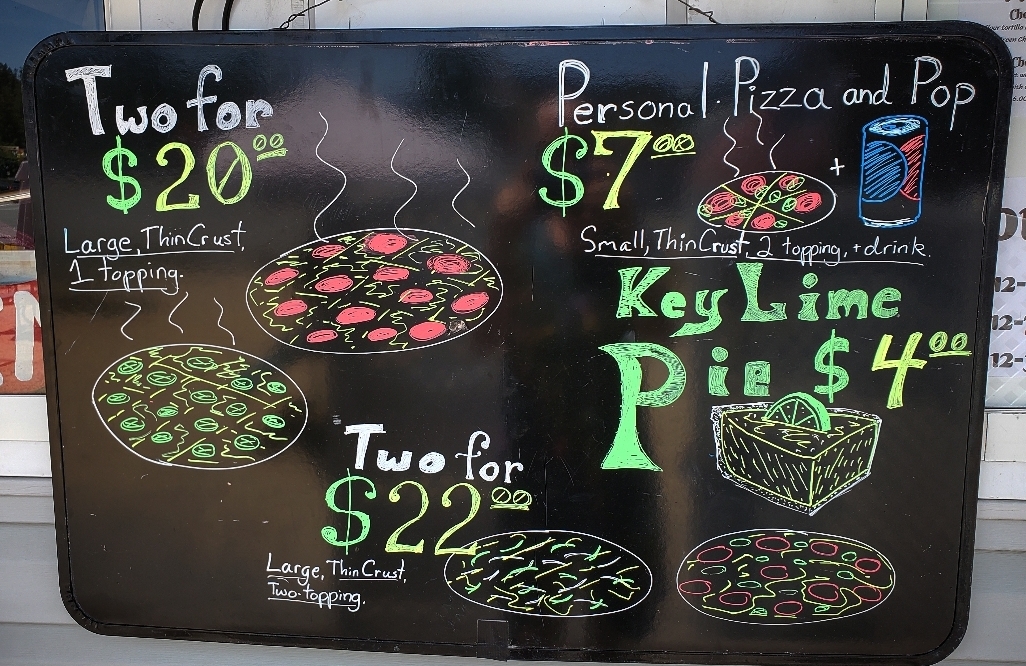 Two for
$20.00
Large, Thin Crust,
1 topping.
Personal Pizza and Pop
$7.00
+
Small, Thin Crust, 2 topping, + drink.
Key Lime
Pie $4.00
Two for
$22.00
Large, Thin Crust,
Two topping.